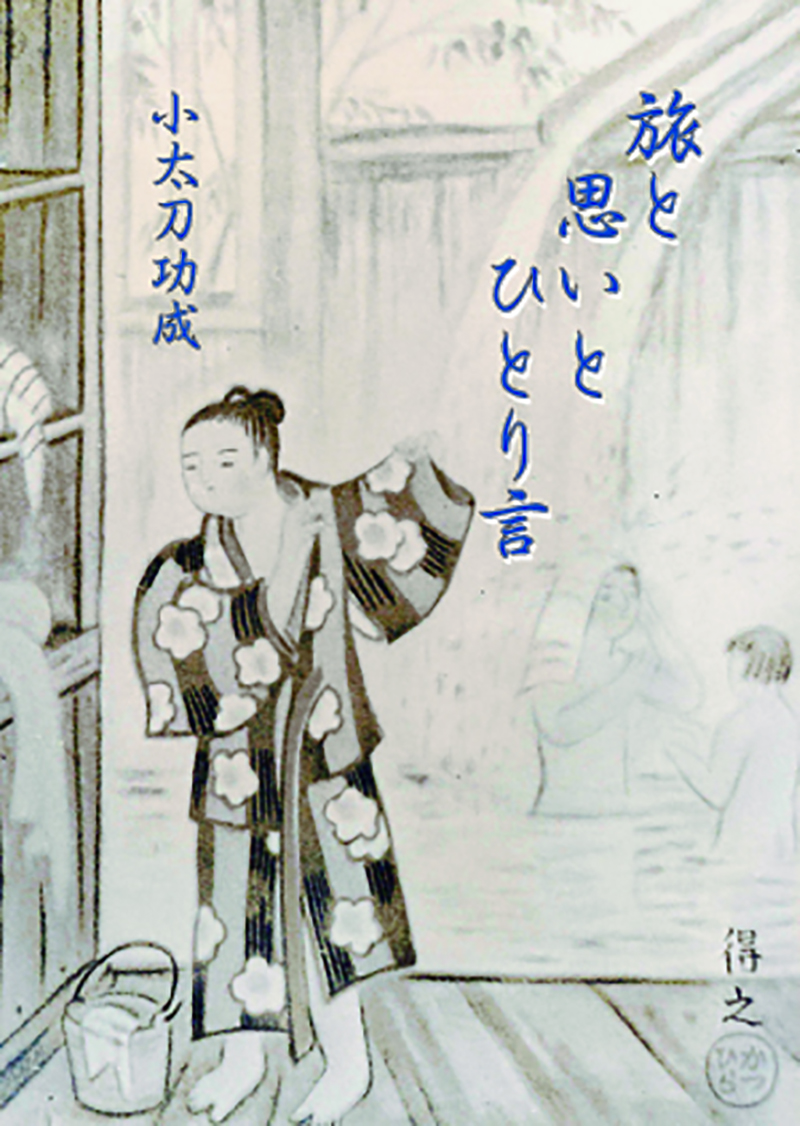 旅と
思いと
ひとり言
小太刀功成
得之
かつ
ひら